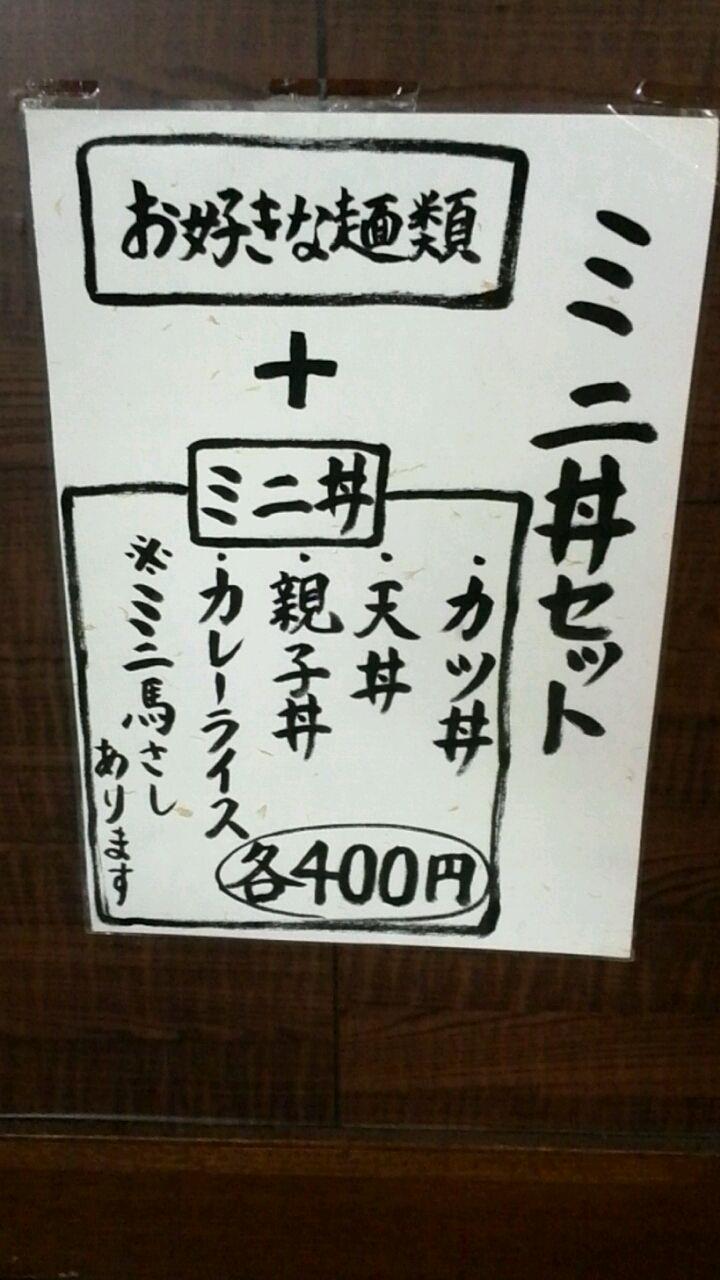 ミニ丼セット
お好きな麺類
+
ミニ丼
・カツ丼
・天丼
・親子丼
・カレーライス
※ミニ馬さし
あります
各400円